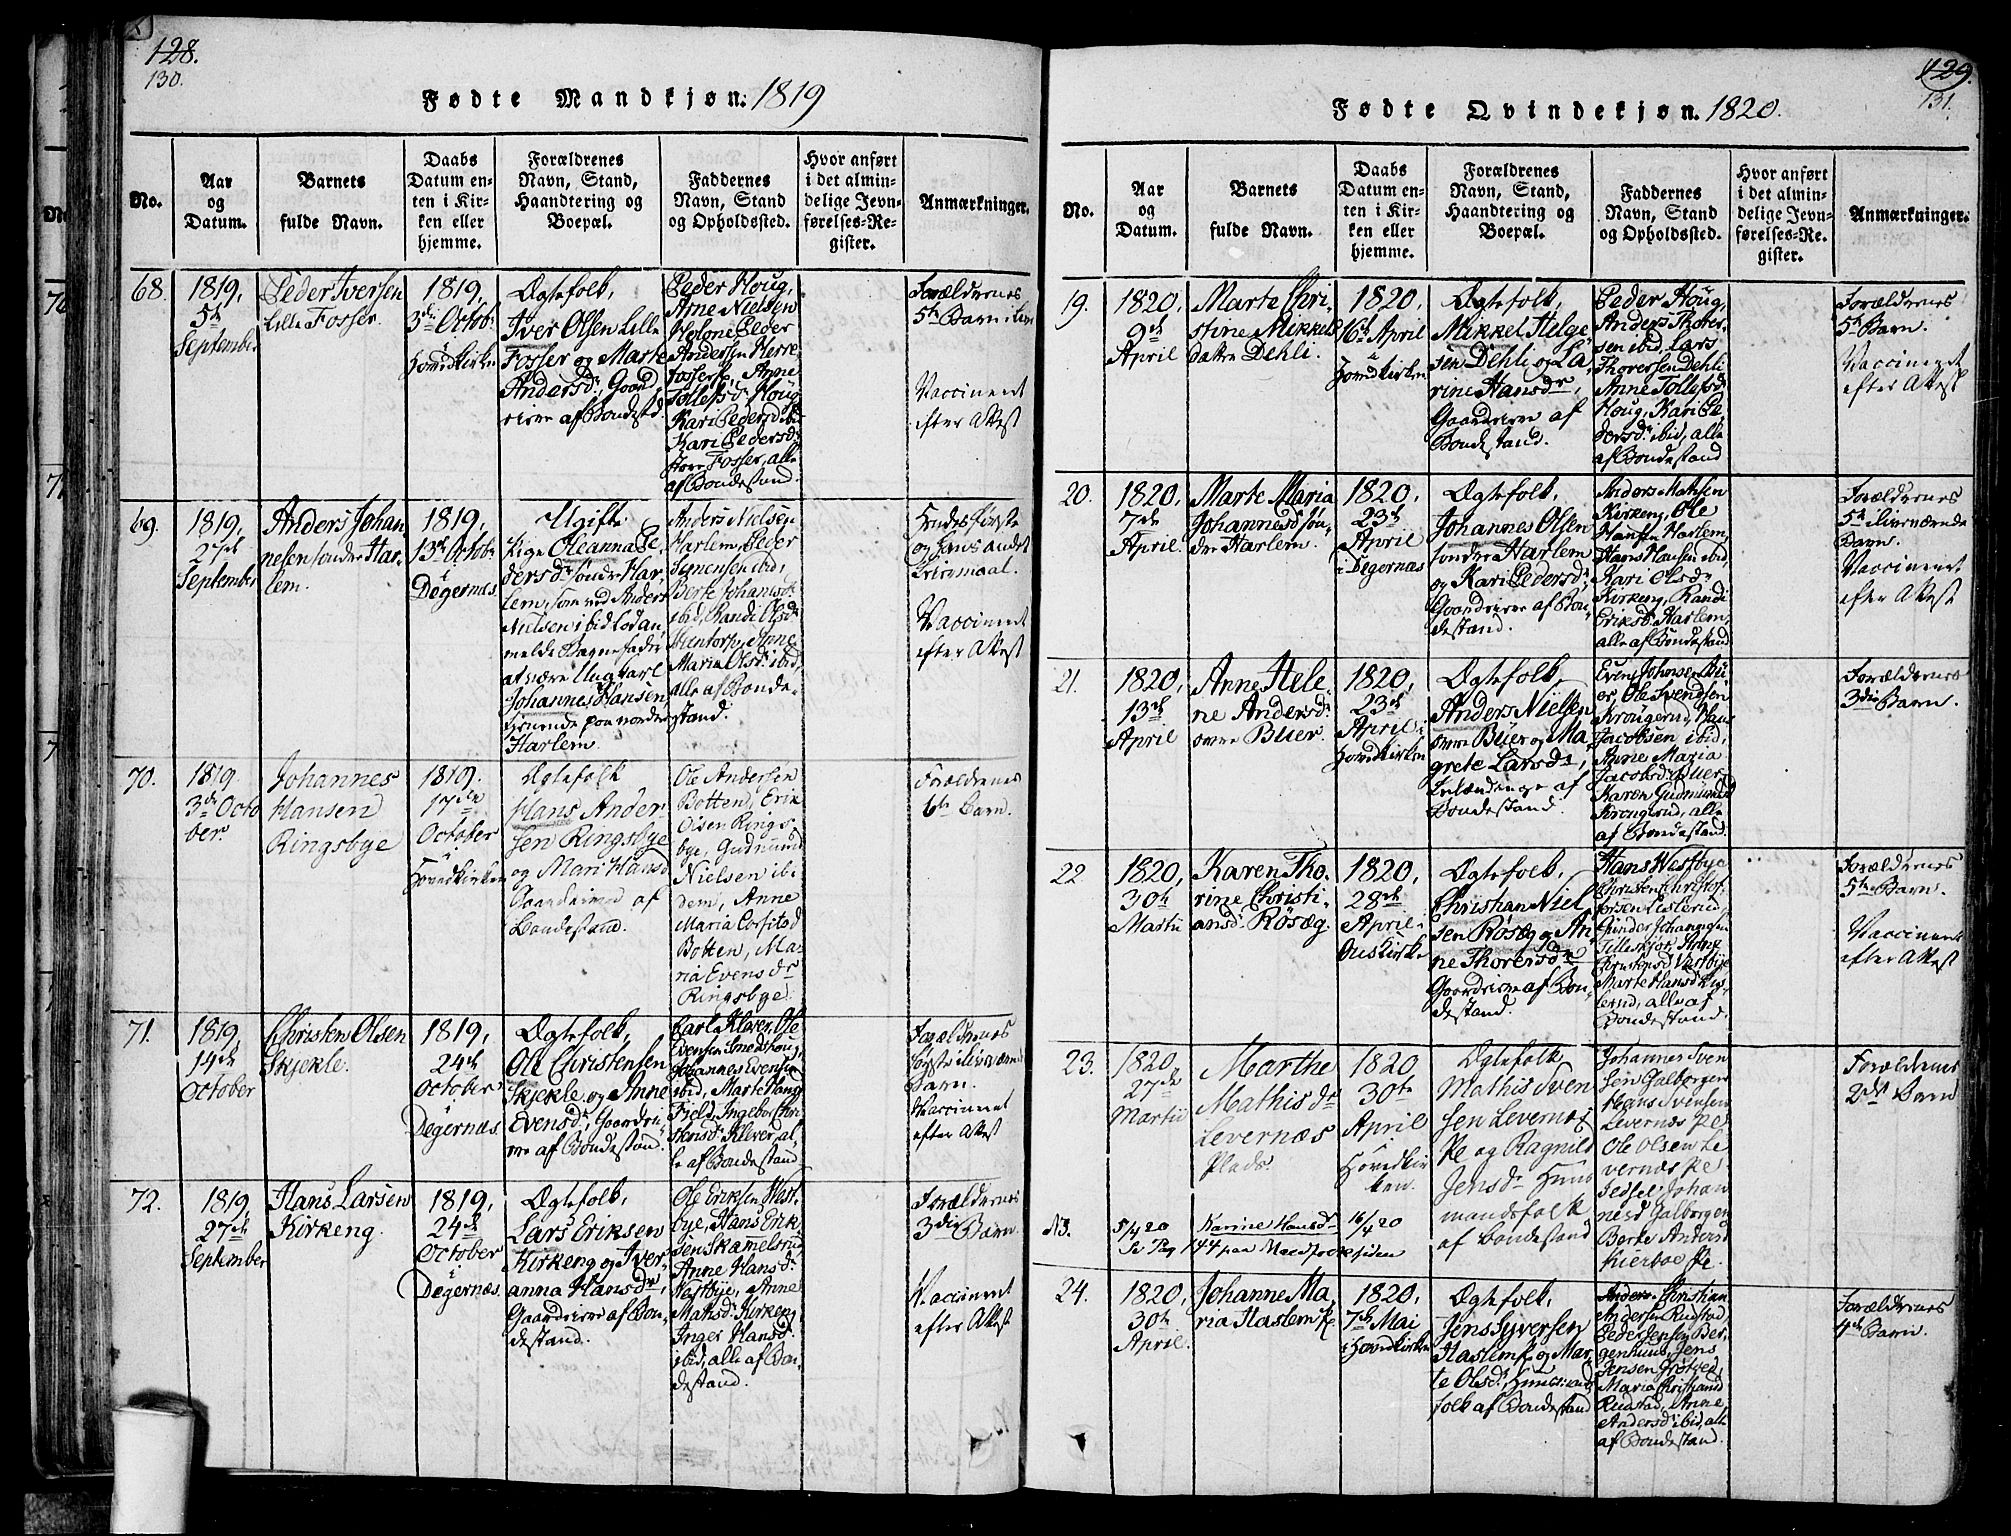 128.
130.
Fødte Mandkjøn. 1819
No.
Aar
og
Datum.
Barnets
fulde Navn.
Daabs
Datum en-
ten i Kir-
ken eller
hjemme.
Forældrenes
Navn, Stand,
Haandtering og
Boepæl.
Faddernes
Navn, Stand
og Opholdssted.
Hvor anført
i det almin-
delige Jevn-
førelses-Re-
gister.
Anmærkninger.
68.
1819,
5te
September
Peder Iversen
Lille Fosser.
1819,
3de Octobr
i
Hovedkirken
Ægtefolk,
Iver Olsen Lille
Fosser og Marte
Andersdr, Gaard-
brugere af Bondestd.
Peder Houg,
Arne Nielsen
Holone, Peder
Andersen Herre-
fosser, Anne
Tollefsdr Houg
Kari Pedersd ibid
Kari Pedersdr
store Fosser, alle
af Bondestand.
Forældrenes
5te Barn
Vaccineret
efter Attest
69.
1819,
27de
September
Anders Johan-
nesen søndre Har-
lem.
1819,
13de Octobr
i
Degernæs.
Ugift
Pige Oleanna Pe-
dersdr søndre Har-
lem, som ved Anders
Nielsen ibid lod an-
melde Barnefader
at være Ungkarl
Johannes Hansen,
tienende paa nordre
Harlem.
Anders Nielsen
Harlem, Peder
Simensen ibid,
Berte Johansdr
ibid, Randi Olsdr
Hentorp, Anne
Maria Olsdr ibid,
alle af Bonde-
stand.
Hendes første
og Hans andet
Leiermaal.
Vaccineret
efter Attest
70.
1819.
3de Octo
ber.
Johannes
Hansen
Ringsbye
1819.
17de
October
i
Hovedkirken
Ægtefolk
Hans Ander-
sen Ringsbye
og Mari Hansd
Gaardbrugere af
Bondestand.
Ole Andersen
Botten, Erik
Olsen Rings-
bye, Gudmund
Nielsen ibi-
dem, Anne
Maria
Botten, Ma-
ria Evensdr
Ringsbye.
Forældrenes
6te Barn.
71.
1819,
14de
October
Christen Olsen
Skjekle.
1819,
24de
October
i
Degernæs.
Ægtefolk,
Ole Christensen
Skjekle og Anne
Evensdr, Gaardbru-
gere af Bondestand.
Carl Klaver, Ole
Evensen Smedshoug,
Johannes Evensen
ibid, Marte Haug
Field, Ingebor Chri-
stensdr Klever, al-
le af Bondestand
Forældrenes
Barn.
Vaccineret
efter Attest
72.
1819,
27de
September
Hans Larsen
Kirkeng.
1819,
24de
October
i
Degernæs.
Ægtefolk,
Lars Eriksen
Kirkeng og Iver-
anna Hansdr,
Gaardbrugere af Bon-
destand.
Ole Eriksen Vest-
bye, Hans Erik
sen Skammelsrud,
Anne Hansdr
Vestbye, Anne
Matsdr Kirkeng
Inger Hansdr
ibid, alle af Bon-
destand.
Forældrenes
3die Barn
Vaccineret
efter Attest
129.
131.
Fødte Qvindekjøn. 1820.
No.
Aar
og
Datum.
Barnets
fulde Navn.
Daabs
Datum en-
ten i Kir-
ken eller
hjemme.
Forældrenes
Navn, Stand,
Haandtering og
Boepæl.
Faddernes
Navn, Stand
og Opholdssted.
Hvor anført
i det almin-
delige Jevn-
førelses-Re-
gister.
Anmærkninger.
19.
1820,
9de
April
Marte Chri-
stine Mikkels
datter Dehli.
1820,
16de April
i
Hovedkirken
Ægtefolk,
Mikkel Helge-
sen Dehli og La-
rine Hansdr,
Gaardbrugere af
Bondestand.
Peder Houg,
Anders Thorer-
sen ibid, Lars
Thoresen Dehli
Anne Tollefsd
Houg, Kari Pe-
dersdr ibid, alle
af Bondestand
Forældrenes
5te Barn.
Vaccineret
efter Attest
20.
1820,
7de
April.
Marte Maria
Johannesd søn-
dre Harlem.
1820,
23de
April
i Degernæs
Ægtefolk,
Johannes Olsen
søndre Harlem
og Kari Pedersdr
Gaardbrugere af Bon-
destand.
Anders Mathsen
Kirkeng, Ole
Hansen Harlem,
Hans Hansen ibid,
Kari Olsdr
Kirkeng, Randi
Eriksdr Harlem,
alle af Bondestand
Forældrenes
5te livnærende
Barn.
Vaccineret
efter Attest
21.
1820,
13de
April
Anne Hele-
ne Andersdr
øvre Buer.
1820,
23de
April i
Hovedkirken
Ægtefolk,
Anders Nielsen
øvre Buer og Ma-
grete Larsdr,
af
Bondestand.
Even Johnsen Bu-
er, Ole Svendsen
Krougerud, Hans
Jacobsen ibid,
Anne Maria
Jacobsdr Buer
Karen Gudmundsd
Krougerud, alle
af Bondestand.
Forældrenes
3die Barn.
22
1820,
30te
Martii
Karen Tho-
rine Christi-
ansdr Røsæg.
1820,
28de
April i
Ous Kirke
Ægtefolk,
Christian Niel-
sen Røsæg og An-
ne Thorersdr
Gaardbrugere af Bon-
destand.
Hans Westbye
Christen Christof-
fersen Lislerud,
Gunder Johannesen
Tilleskjor, Anne
Christensd Vestbye
Marte Hansd Lis-
lerud, alle af
Bondestand.
Forældrenes
5te Barn.
Vaccineret
efter Attest
23.
1820,
27de
Martii
Marthe
Mathisdr
Levernæs
Plads.
1820
30te
April
i
Hovedkir
ken.
Ægtefolk
Mathis Sven
sen Levernæs
Pe og Ragnild
Jensdr Huus
mandsfolk
af Bondestand
Johannes Sven
sen Galborgen
Hans Svensen
Levernæs Pe
Ole Olsen Le
vernæs Pe
Johan
nesd Galborgen
Berte Andersd
Kierboe Pe.
Forældrenes
2det Barn
N3.
5/4 20
Se Pag 144 paa Mandkjøn siden
Karine Hansdr
16/4 20
24.
1820,
30te
April.
Johanne Ma-
ria Haslem Pe.
1820,
7de Mai
i Hovedkirken
Ægtefolk,
Jens Syversen
Haslem Pe og Mar-
te Olsdr, Huusmands
folk af Bondestand
Anders Christian
Andersen Rustad,
Peder Jensen Ber-
genhuus, Jens
Jensen Grøtved,
Maria Christiansd
Rustad, Anne
Andersdr ibid, alle
af Bondestand.
Forældrenes
4de Barn.